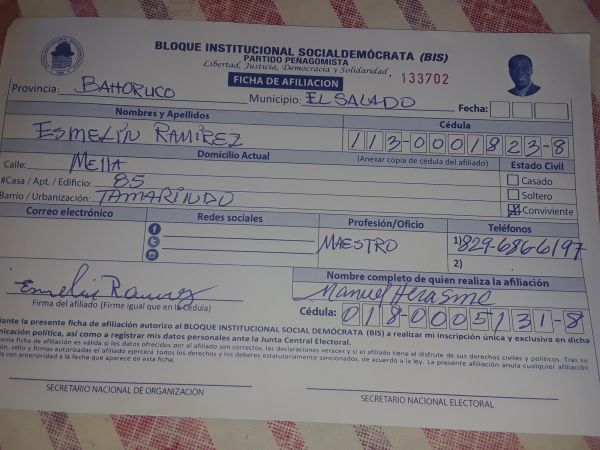 BLOQUE INSTITUCIONAL SOCIALDEMÓCRATA (BIS)
PARTIDO PEÑAGOMISTA
Libertad, Justicia, Democracia y Solidaridad,
FICHA DE AFILIACION
133702
Provincia: BAHORUCO Municipio: EL SALADO Fecha:
Nombres y Apellidos Cédula
ESMELIN RAMIREZ 113-0001823-8
Domicilio Actual (Anexar copia de cédula del afiliado) Estado Civil
Calle: MELLA Casado
#Casa / Apt. / Edificio: 85 Soltero
Barrio / Urbanización: TAMARINDO Conviviente
Correo electrónico Redes sociales Profesión/Oficio Teléfonos
MAESTRO 1) 829-686-6197
2)
Nombre completo de quien realiza la afiliación
Esmelin Ramirez Manuel Herasme
Firma del afiliado (Firme igual que en la cédula) Cédula: 018-0005131-8
iante la presente ficha de afiliación autorizo al BLOQUE INSTITUCIONAL SOCIAL DEMÓCRATA (BIS) a realizar mi inscripción única y exclusiva en dicha
nización política, así como a registrar mis datos personales ante la Junta Central Electoral.
sente ficha de afiliación es válida si los datos ofrecidos por el afiliado son correctos, las declaraciones veraces y si el afiliado tiene el disfrute de sus derechos civiles y políticos. Tras su
ón, sello y firmas autorizadas el afiliado ejercerá todos los derechos y los deberes estatutariamente sancionados, de acuerdo a la ley. La presente afiliación anula cualquier afiliación
da con anterioridad a la fecha que aparece en esta ficha.
SECRETARIO NACIONAL DE ORGANIZACIÓN SECRETARIO NACIONAL ELECTORAL